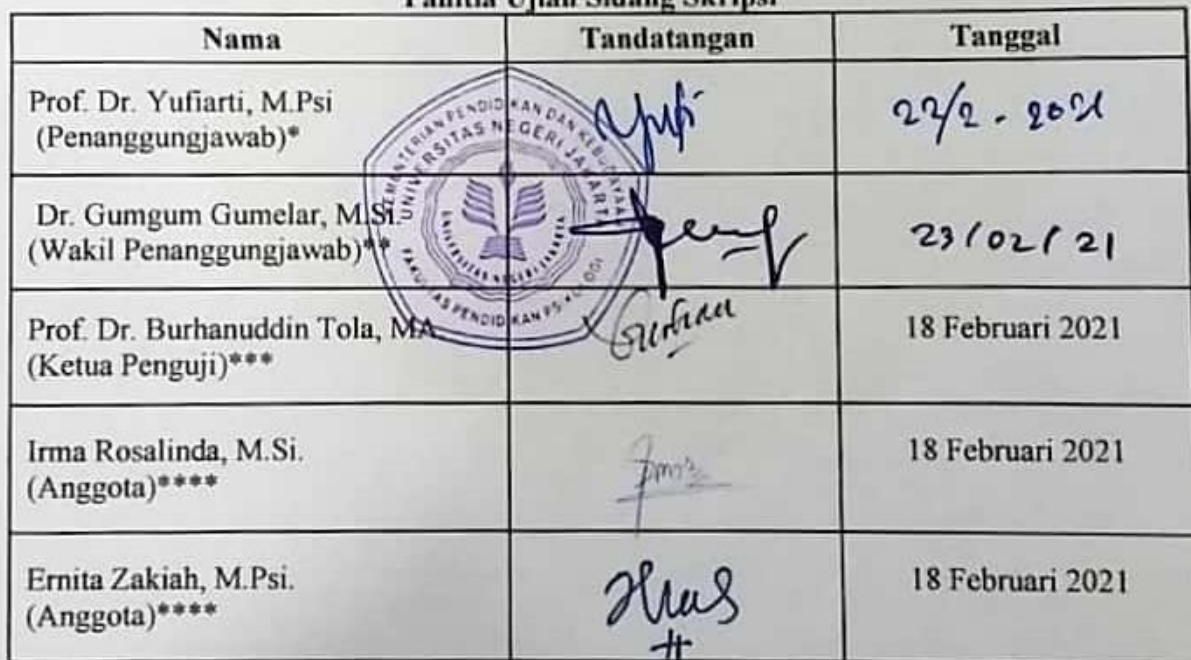 Panitia Ujian Sidang Skripsi
Nama Tandatangan Tanggal
Prof. Dr. Yufiarti, M.Psi
(Penanggungjawab)*
22/2 - 2021
Dr. Gumgum Gumelar, M.Si.
(Wakil Penanggungjawab)**
23/02/21
Prof. Dr. Burhanuddin Tola, MA
(Ketua Penguji)***
18 Februari 2021
Irma Rosalinda, M.Si.
(Anggota)****
18 Februari 2021
Ernita Zakiah, M.Psi.
(Anggota)****
18 Februari 2021
KEMENTERIAN PENDIDIKAN DAN KEBUDAYAAN
UNIVERSITAS NEGERI JAKARTA
UNIVERSITAS NEGERI JAKARTA
FAKULTAS PENDIDIKAN PSIKOLOGI